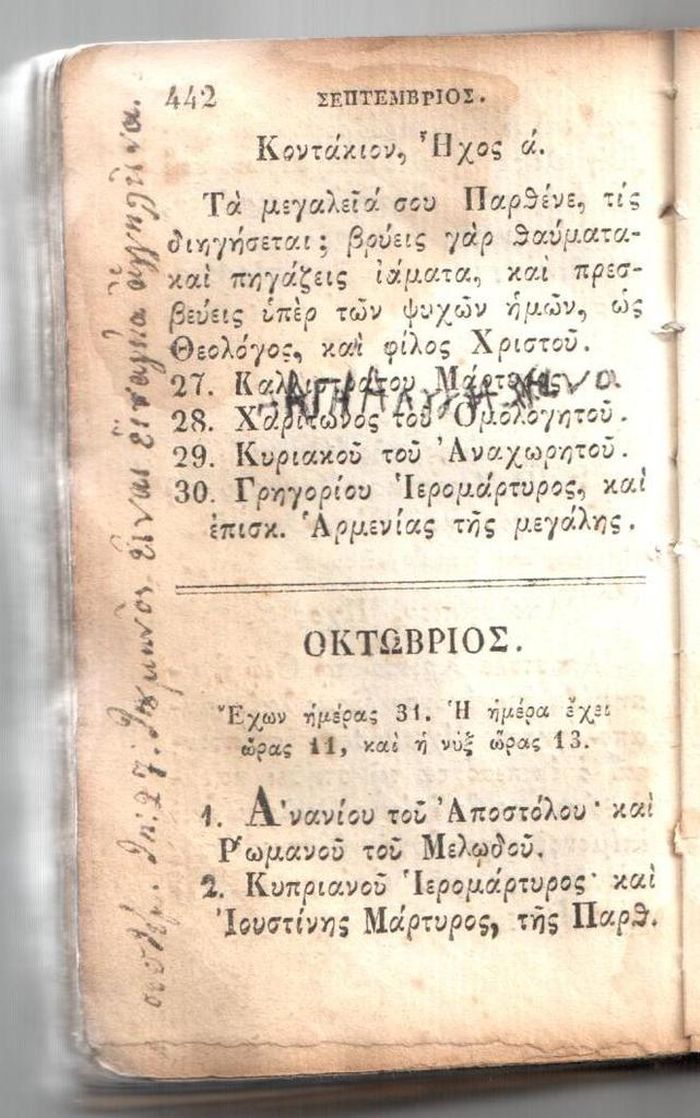 442 ΣΕΠΤΕΜΒΡΙΟΣ.
Κοντάκιον, Ἦχος ά.
Τὰ μεγαλεῖά σου Παρθένε, τίς
διηγήσεται; βρύεις γὰρ θαύματα-
καὶ πηγάζεις ἰάματα, καὶ πρεσ-
βεύεις ὑπὲρ τῶν ψυχῶν ἡμῶν, ὡς
Θεολόγος, καὶ φίλος Χριστοῦ.
27. Καλλιστράτου Μάρτυρος.
28. Χαρίτωνος τοῦ Ὁμολογητοῦ.
29. Κυριακοῦ τοῦ Ἀναχωρητοῦ.
30. Γρηγορίου Ἱερομάρτυρος, καὶ
ἐπισκ. Ἀρμενίας τῆς μεγάλης.
ΟΚΤΩΒΡΙΟΣ.
Ἔχων ἡμέρας 31. Ἡ ἡμέρα ἔχει
ὥρας 11, καὶ ἡ νὺξ ὥρας 13.
1. Ἀνανίου τοῦ Ἀποστόλου· καὶ
Ῥωμανοῦ τοῦ Μελῳδοῦ.
2. Κυπριανοῦ Ἱερομάρτυρος· καὶ
Ἰουστίνης Μάρτυρος, τῆς Παρθ.